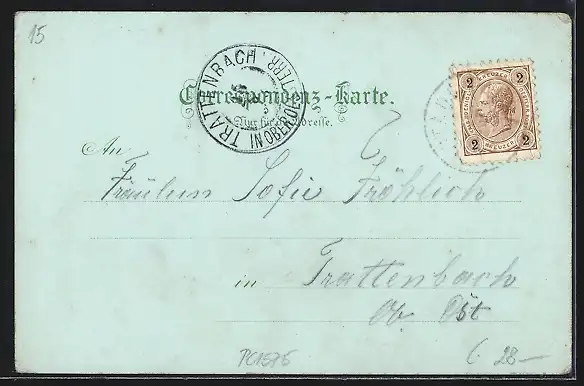 15
TRATTENBACH IN OBEROESTERR.
2 KREUZER 2
2 KREUZER 2
Correspondenz-Karte.
Nur für die Adresse.
An
Fräulein Sofie Fröhlich
in Trattenbach
Ob. Öst
PC1575
28-